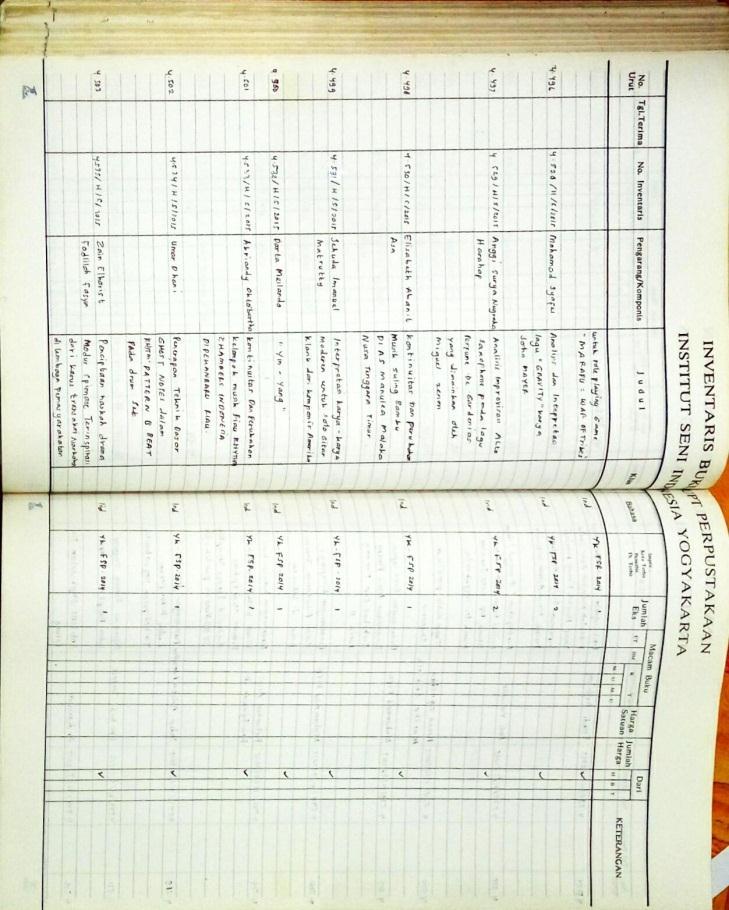 INVENTARIS BUKU
UPT PERPUSTAKAAN
INSTITUT SENI INDONESIA YOGYAKARTA
No. Urut
Tgl.Terima
No. Inventaris
Pengarang/Komponis
Judul
Klas
Bahasa
Jumlah Eks
Macam Buku
Harga Satuan
Jumlah Harga
Dari
H B T
KETERANGAN
untuk role playing Game
"MARAPU : WAR OF TRIBE"
Ind
Yk FSR 2014
1
4.496
Mohamad Syafu
Analisis dan Interpretasi
lagu "GRAVITY" karya
John MAYER
Ind
Yk FSP 2014
2
4.497
4.529/H/S/2015
Anggi Surya Nugraha
Harahap
Analisis Improvisasi Alto
Saxophone pada lagu
Perfume De Gardenias
yang dimainkan oleh
Miguel Zenon
Ind
Yk FSP 2014
2
4.498
4.530/H/S/2015
Elisabeth Akanit
Asa
Kontinuitas Dan perubahan
Musik Suling Bambu
Di
Nusa Tenggara Timur
Ind
Yk FSP 2014
1
4.499
4.531/H/S/2015
Jehuda Imanuel
Matrutty
Interpretasi karya-karya
modern untuk solo Gitar
klasik dari komponis Amerika
Ind
Yk FSP 2014
1
4.500
4.532/H/S/2015
Dorta Meilanda
"Yin - Yang"
Ind
Yk FSP 2014
1
4.501
4.533/H/S/2015
Abriandy Oktobertho
kontinuitas Dan Perubahan
kelompok musik Riau RHYTHM
CHAMBERS INDONESIA
DIPEKANBARU RIAU
Ind
Yk FSP 2014
1
4.502
4.534/H/S/2015
Umar Dhani
Penerapan Teknik Dasar
GHOST NOTES dalam
RHYTM PATTERN 8 BEAT
Pada drum Set
Ind
Yk FSP 2014
1
4.503
4.535/H/S/2015
Zain Elharist
Fadlilah Fasya
Penciptaan naskah drama
Terinspirasi
dari kasus transaksi narkoba
di lembaga Pemasyarakatan
Ind
Yk FSP 2014
1